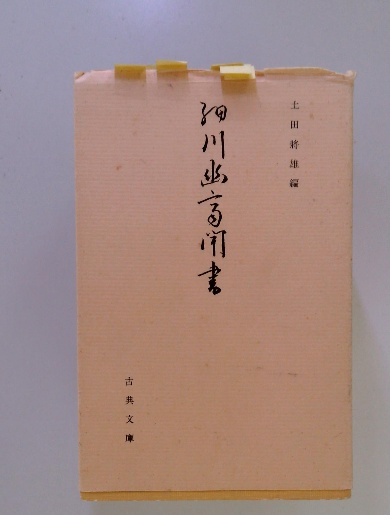 土田將雄編
細川幽斎聞書
古典文庫